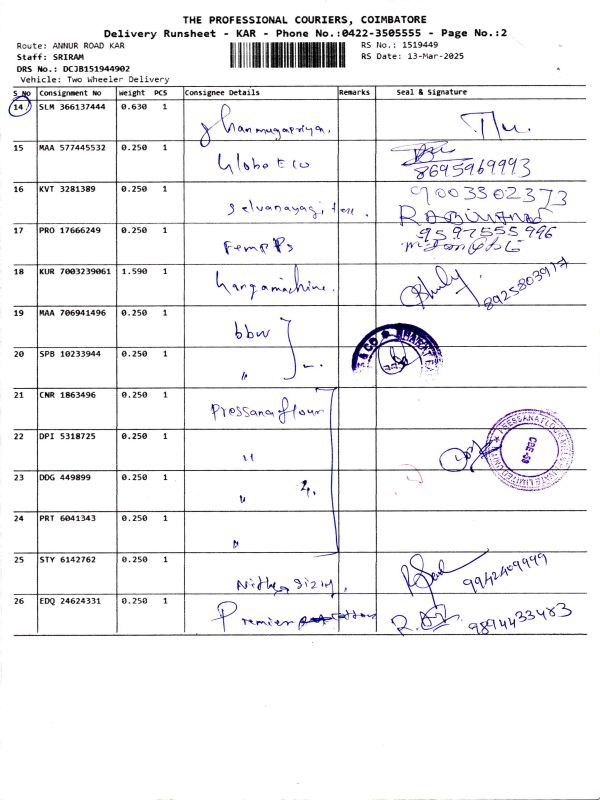 THE PROFESSIONAL COURIERS, COIMBATORE
Delivery Runsheet - KAR - Phone No.:0422-3505555 - Page No.:2
Route: ANNUR ROAD KAR
RS No.: 1519449
Staff: SRIRAM
RS Date: 13-Mar-2025
DRS No.: DCJB151944902
Vehicle: Two Wheeler Delivery
S_No Consignment No Weight PCS Consignee Details Remarks Seal & Signature
14 SLM 366137444 0.630 1 Shanmugapriya.
15 MAA 577445532 0.250 1 Globo Eco 8695969993
16 KVT 3281389 0.250 1 Selvanayagi 9003302373
17 PRO 17666249 0.250 1 Fempps 9597555996
18 KUR 7003239061 1.590 1 8925803917
19 MAA 706941496 0.250 1 bbw
20 SPB 10233944 0.250 1 "
21 CNR 1863496 0.250 1 Pressana flour
22 DPI 5318725 0.250 1 "
23 DDG 449899 0.250 1 " 4.
24 PRT 6041343 0.250 1 "
25 STY 6142762 0.250 1 9942409999
26 EDQ 24624331 0.250 1 Premier 9894433483